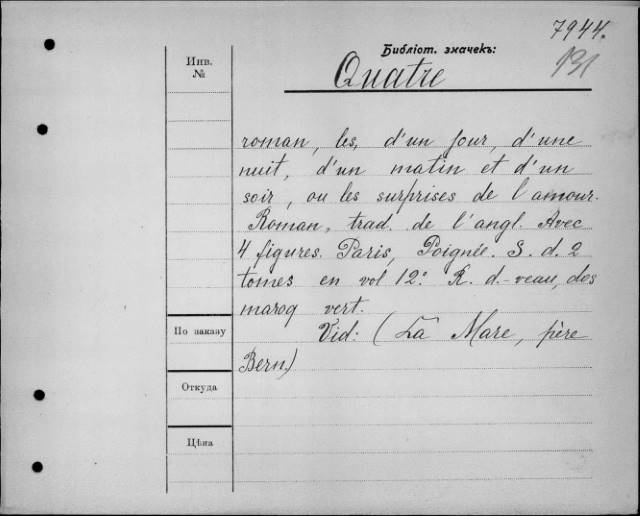 7944.
Библіот. значекъ:
131
Quatre
Инв.
№
roman, les, d'un jour, d'une
nuit, d'un matin et d'un
soir, ou les surprises de l'amour.
Roman, trad. de l'angl. Avec
4 figures. Paris, Poignée. S. d. 2
tomes en vol 12: R. d.-veau, dos
maroq vert.
По заказу
Vid: (La Mare, père
Bern.)
Откуда
Цѣна